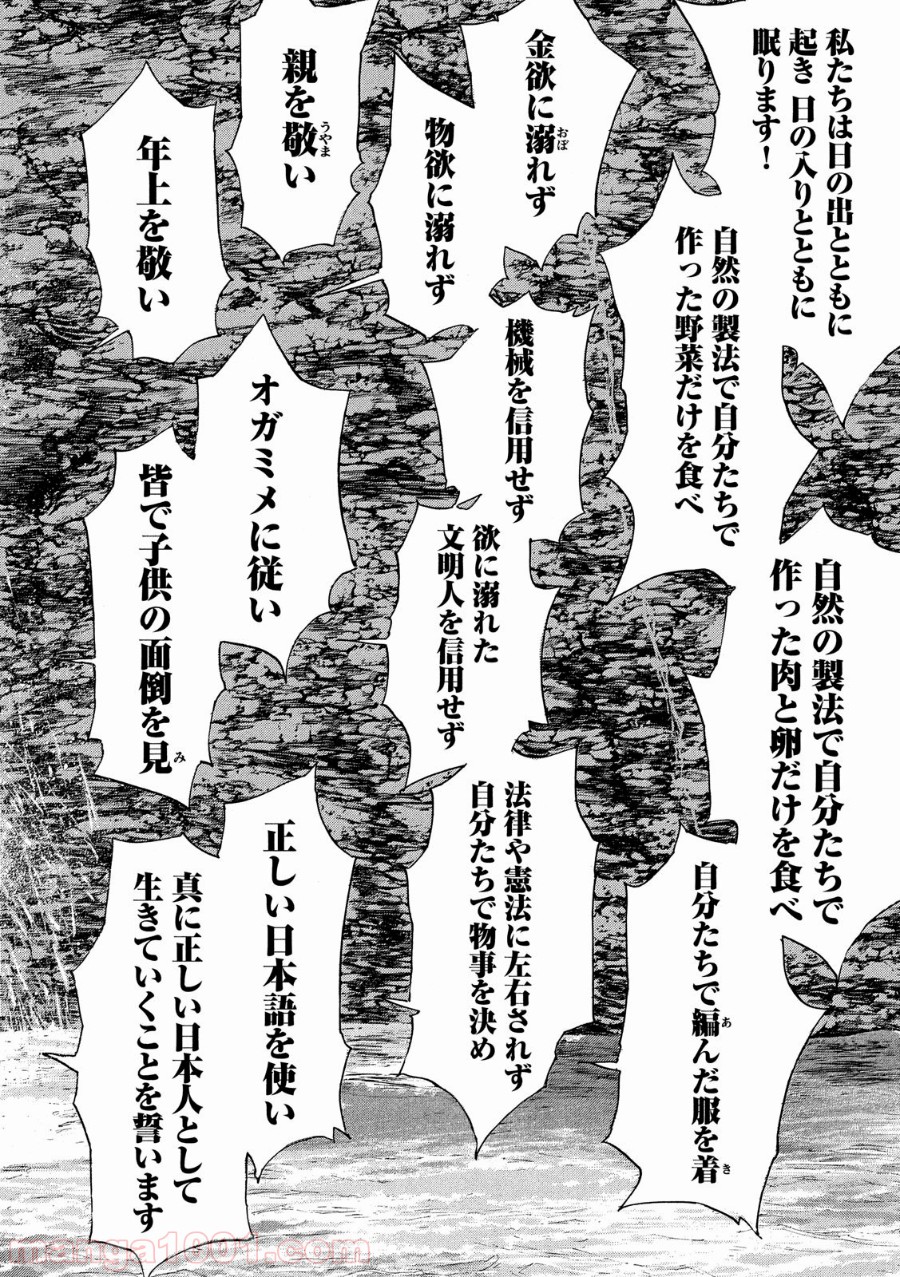 私たちは日の出とともに
起き 日の入りとともに
眠ります！
自然の製法で自分たちで
作った野菜だけを食べ
自然の製法で自分たちで
作った肉と卵だけを食べ
自分たちで編んだ服を着
金欲に溺れず
物欲に溺れず
機械を信用せず
欲に溺れた
文明人を信用せず
法律や憲法に左右されず
自分たちで物事を決め
親を敬い
年上を敬い
オガミメに従い
皆で子供の面倒を見
正しい日本語を使い
真に正しい日本人として
生きていくことを誓います
manga1001.com